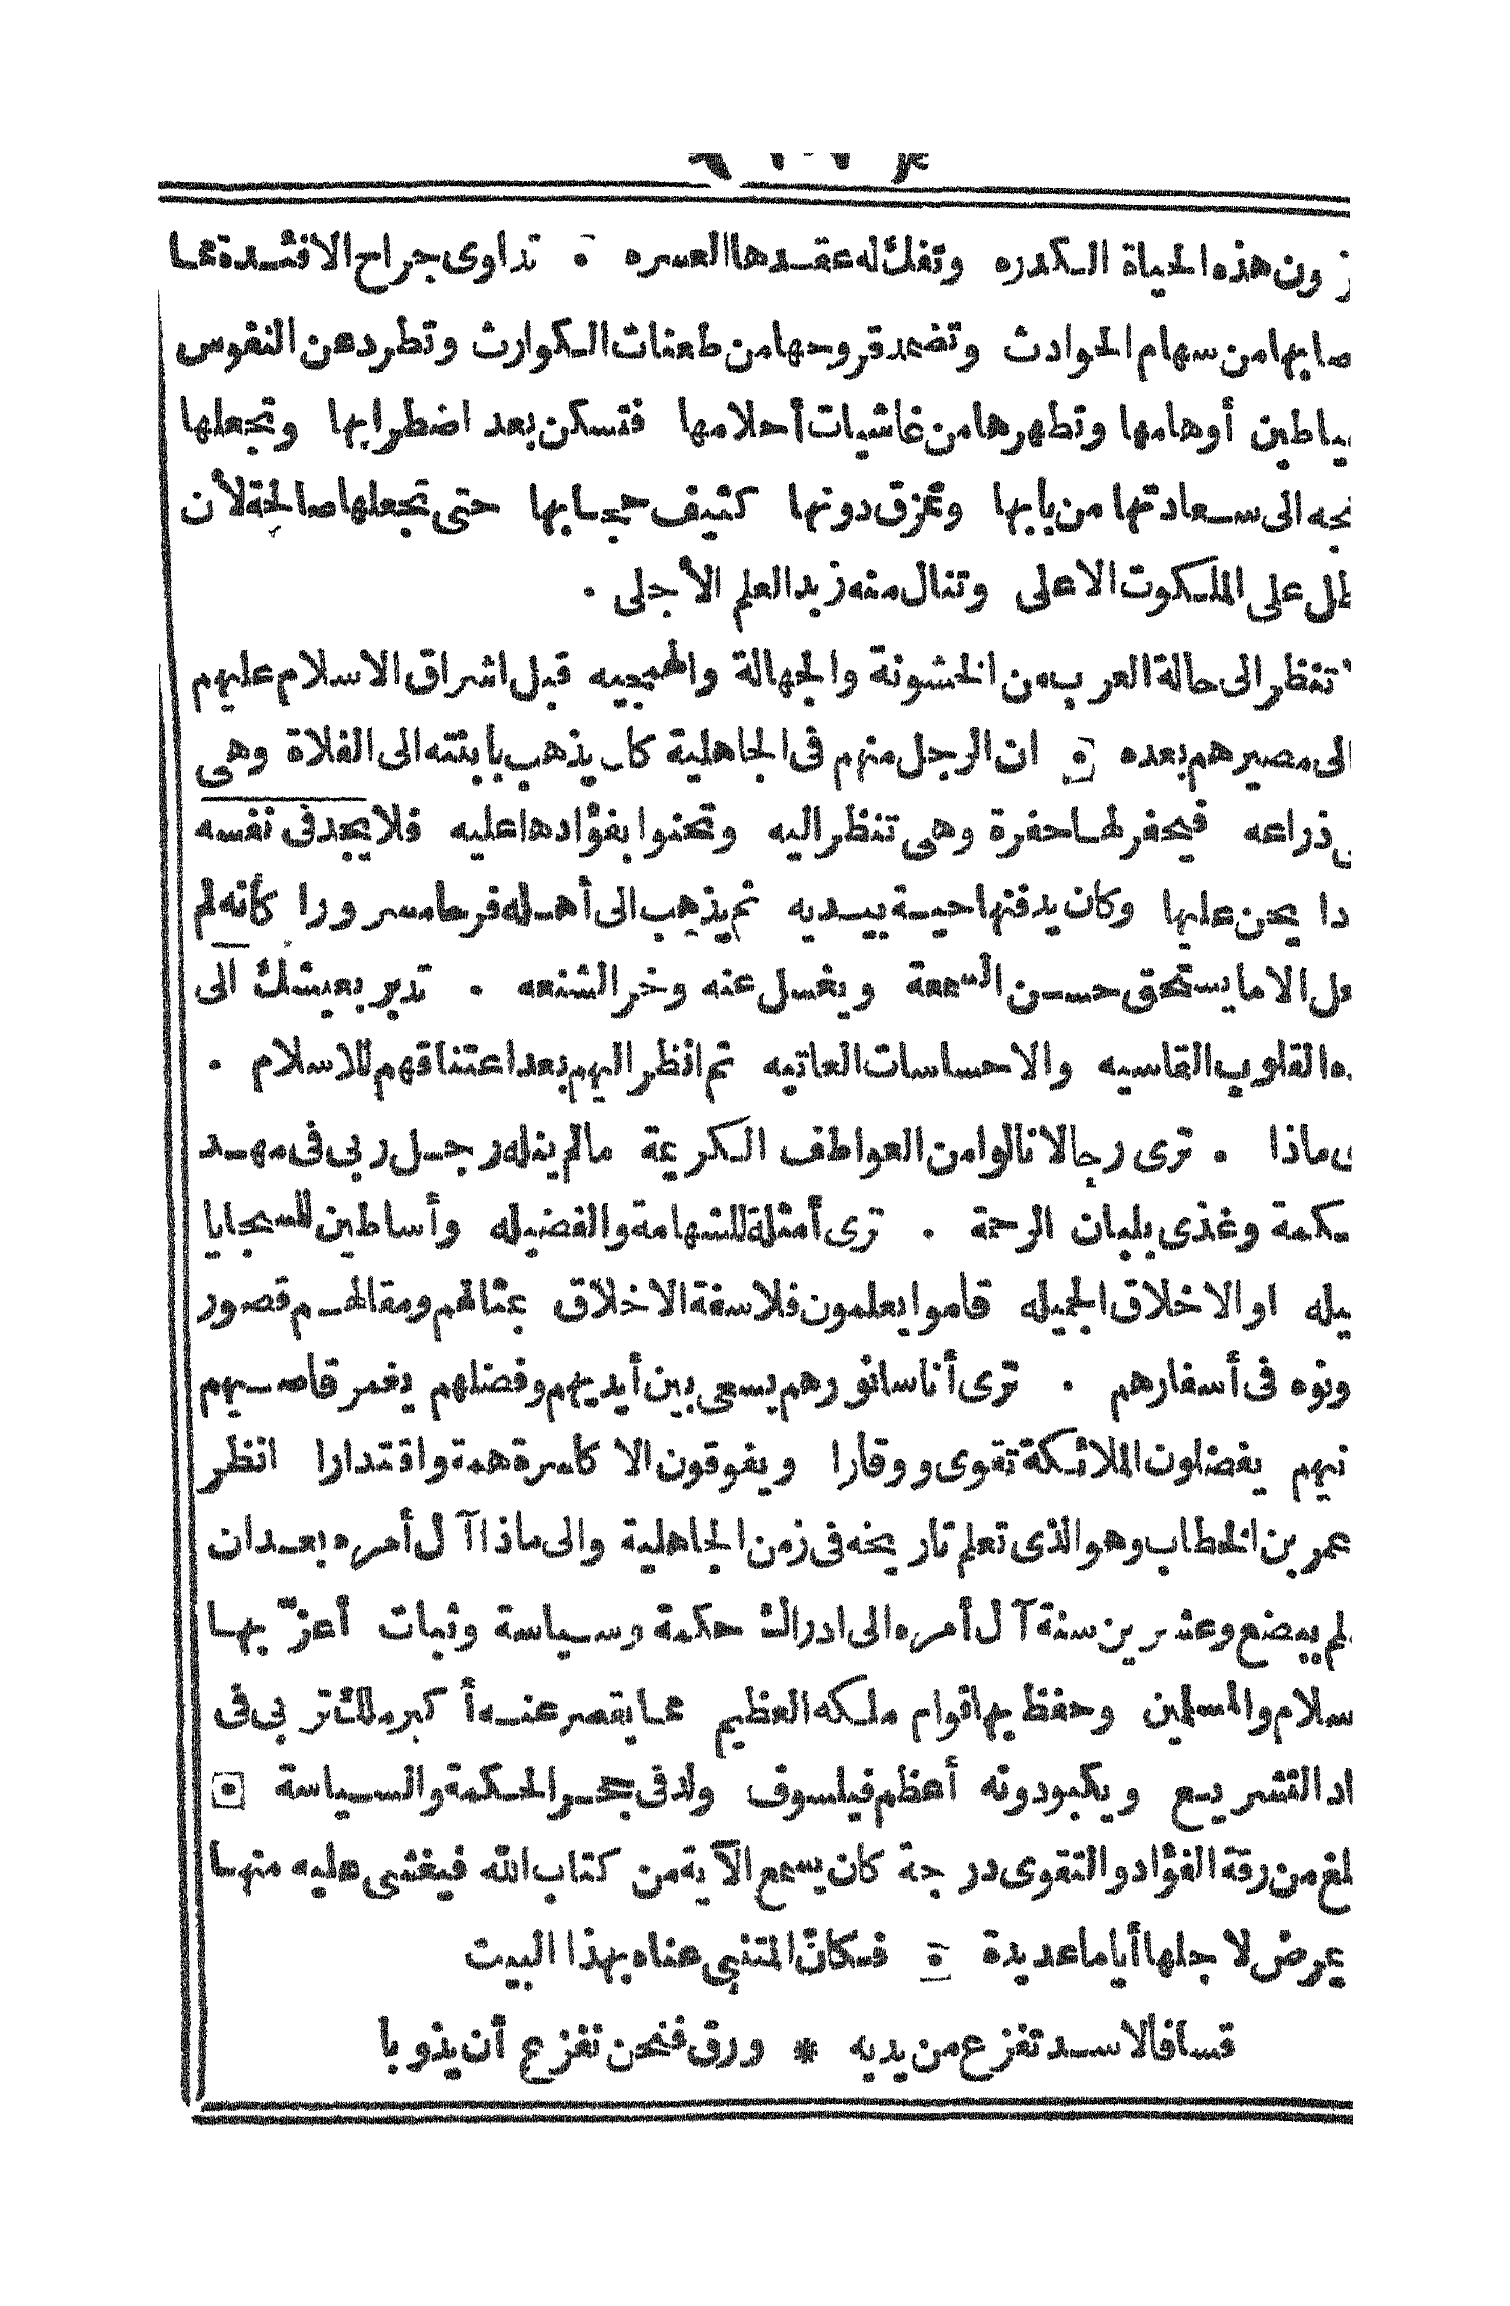 ون هذه الحياة الكدره وتفك له عقدها العسره . تداوى جراح الافئدة مما
صابها من سهام الحوادث وتضمد قروحها من طعنات الكوارث وتطرد عن النفوس
ياطين أوهامها وتطهرها من غاشيات أحلامها فتسكن بعد اضطرابها وتجعلها
تجه الى سعادتها من بابها وتمزق دونها كثيف حجابها حتى تجعلها صالحة لأن
طل على الملكوت الاعلى وتنال منه زبد العلم الأجلى .
تنظر الى حالة العرب من الخشونة والجهالة والهمجيه قبل اشراق الاسلام عليهم
الى مصيرهم بعده ان الرجل منهم فى الجاهلية كان يذهب بابنته الى الفلاة وهى
ذراعه فيحفر لها حفرة وهى تنظر اليه وتحنوا بفؤادها عليه فلا يجد فى نفسه
دا يحن عليها وكان يدفنها حية بيديه ثم يذهب الى أهله فرحا مسرورا كأنه لم
عل الا ما يستحق حسن السمعة ويغسل عنه وخر الشنعه . تدبر بعيشك الى
ه القلوب القاسيه والاحساسات العاتيه ثم انظر اليهم بعد اعتناقهم للاسلام .
ى ماذا . ترى رجالا نالوا من العواطف الكريمة مالم ينله رجل ربى فى مهد
حكمة وغذى بلبان الرحمة . ترى أمثلة للشهامة والفضيله وأساطين للسجايا
يله او الاخلاق الجميله قاموا يعلمون فلاسفة الاخلاق بمثالهم ومقالهم قصور
ونوه فى أسفارهم . ترى أناسا نورهم يسعى بين أيديهم وفضلهم يغمر قاصيهم
نيهم يفضلون الملائكة تقوى ووقارا ويفوقون الاكاسرة همة واقتدارا انظر
عمر بن الخطاب وهو الذى تعلم تاريخه فى زمن الجاهلية والى ماذا آل أمره بعد ان
لم ببضع وعشرين سنة آل أمره الى ادراك حكمة وسياسة وثبات أعزّ بها
سلام والمسلمين وحفظ بها قوام ملكه العظيم مما يقصر عنه أكبر ملك تربى فى
اد التشريع ويكبو دونه أعظم فيلسوف ولد فى حجر الحكمة والسياسة
لغ من رقة الفؤاد والتقوى درجة كان يسمع الآية من كتاب الله فيغشى عليه منها
يمرض لاجلها أياما عديدة فكانّ المتنبى عناه بهذا البيت
قسا فالاسد تفزع من يديه * ورق فنحن نفزع أن يذوبا